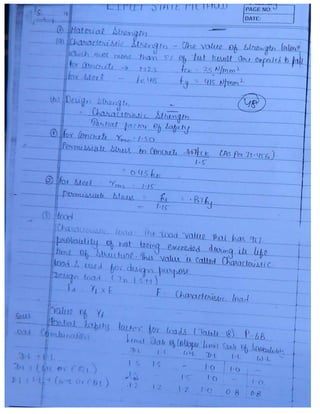 LIMIT STATE METHOD
PAGE NO.
DATE:
① Material Strength
(a) Characteristic Strength - The value of strength below
which not more than 5% of test result are expected to fall
for concrete → M25 fck = 25 N/mm²
for Steel - Fe415 fy = 415 N/mm²
(b) Design Strength
= Characteristic Strength
Partial factor of Safety
① for concrete γmc = 1.50
Permissible stress in Concrete (As Per
1.5
= 0.45 fck
② for Steel γms = 1.15
Permissible Stress = fy = .87fy
1.15
② Load
Characteristic load: The load value that has 95%
probability of not being exceeded during its life
time of structure. This value is called Characteristic
load & used for design purpose.
Design load
Fd = γf x F F = Characteristic load
Value of γf
Partial safety factor for loads (Table 18) P-68
Load Combination Limit State of Collapse Limit State of Serviceability
DL LL WL DL LL WL
DL + LL 1.5 1.5 - 1.0 1.0
1.2 1.2 1.2 1.0 0.8 0.8